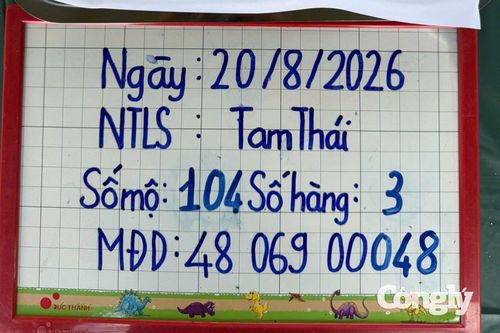 Ngày: 20/8/2026
NTLS : Tam Thái
Số mộ: 104 Số hàng: 3
MĐD: 48 069 00048
ĐỨC THÀNH
Cônglý